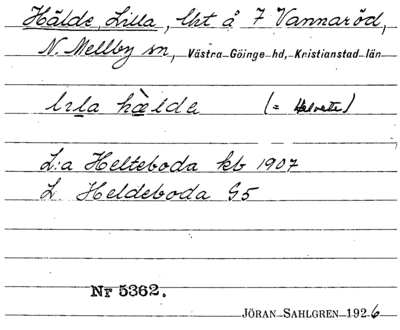 Hälde, Lilla, lht å 7 Vannaröd,
N. Mellby sn, Västra Göinge hd, Kristianstad län
lıla hælde (= Helvete)
L:a Helteboda kb 1907
L. Heldeboda G5
Nr 5362.
JÖRAN SAHLGREN 1926